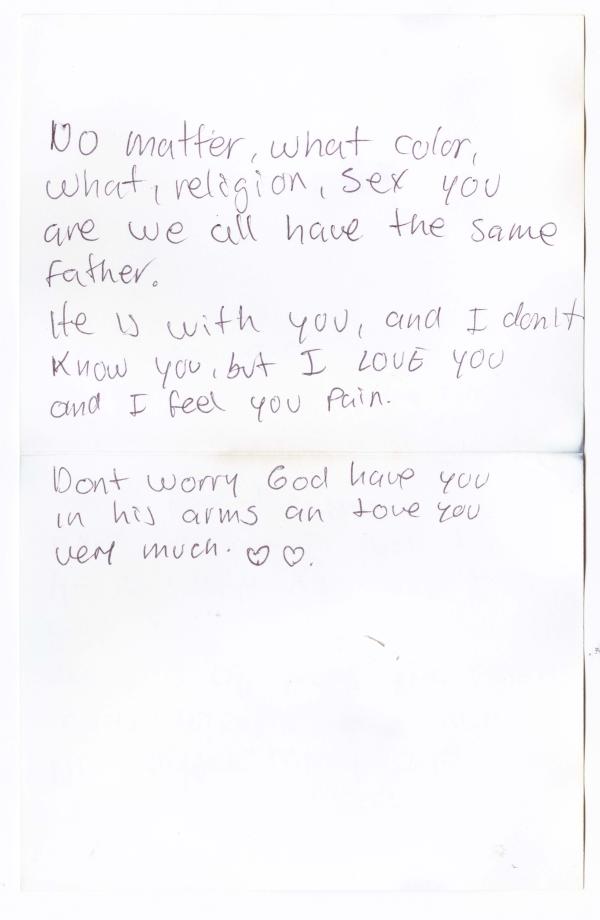 No matter, what color,
what, religion, sex you
are we all have the same
father.
He is with you, and I don't
know you, but I LOVE you
and I feel you pain.
Dont worry God have you
in his arms an love you
very much. ♡ ♡.